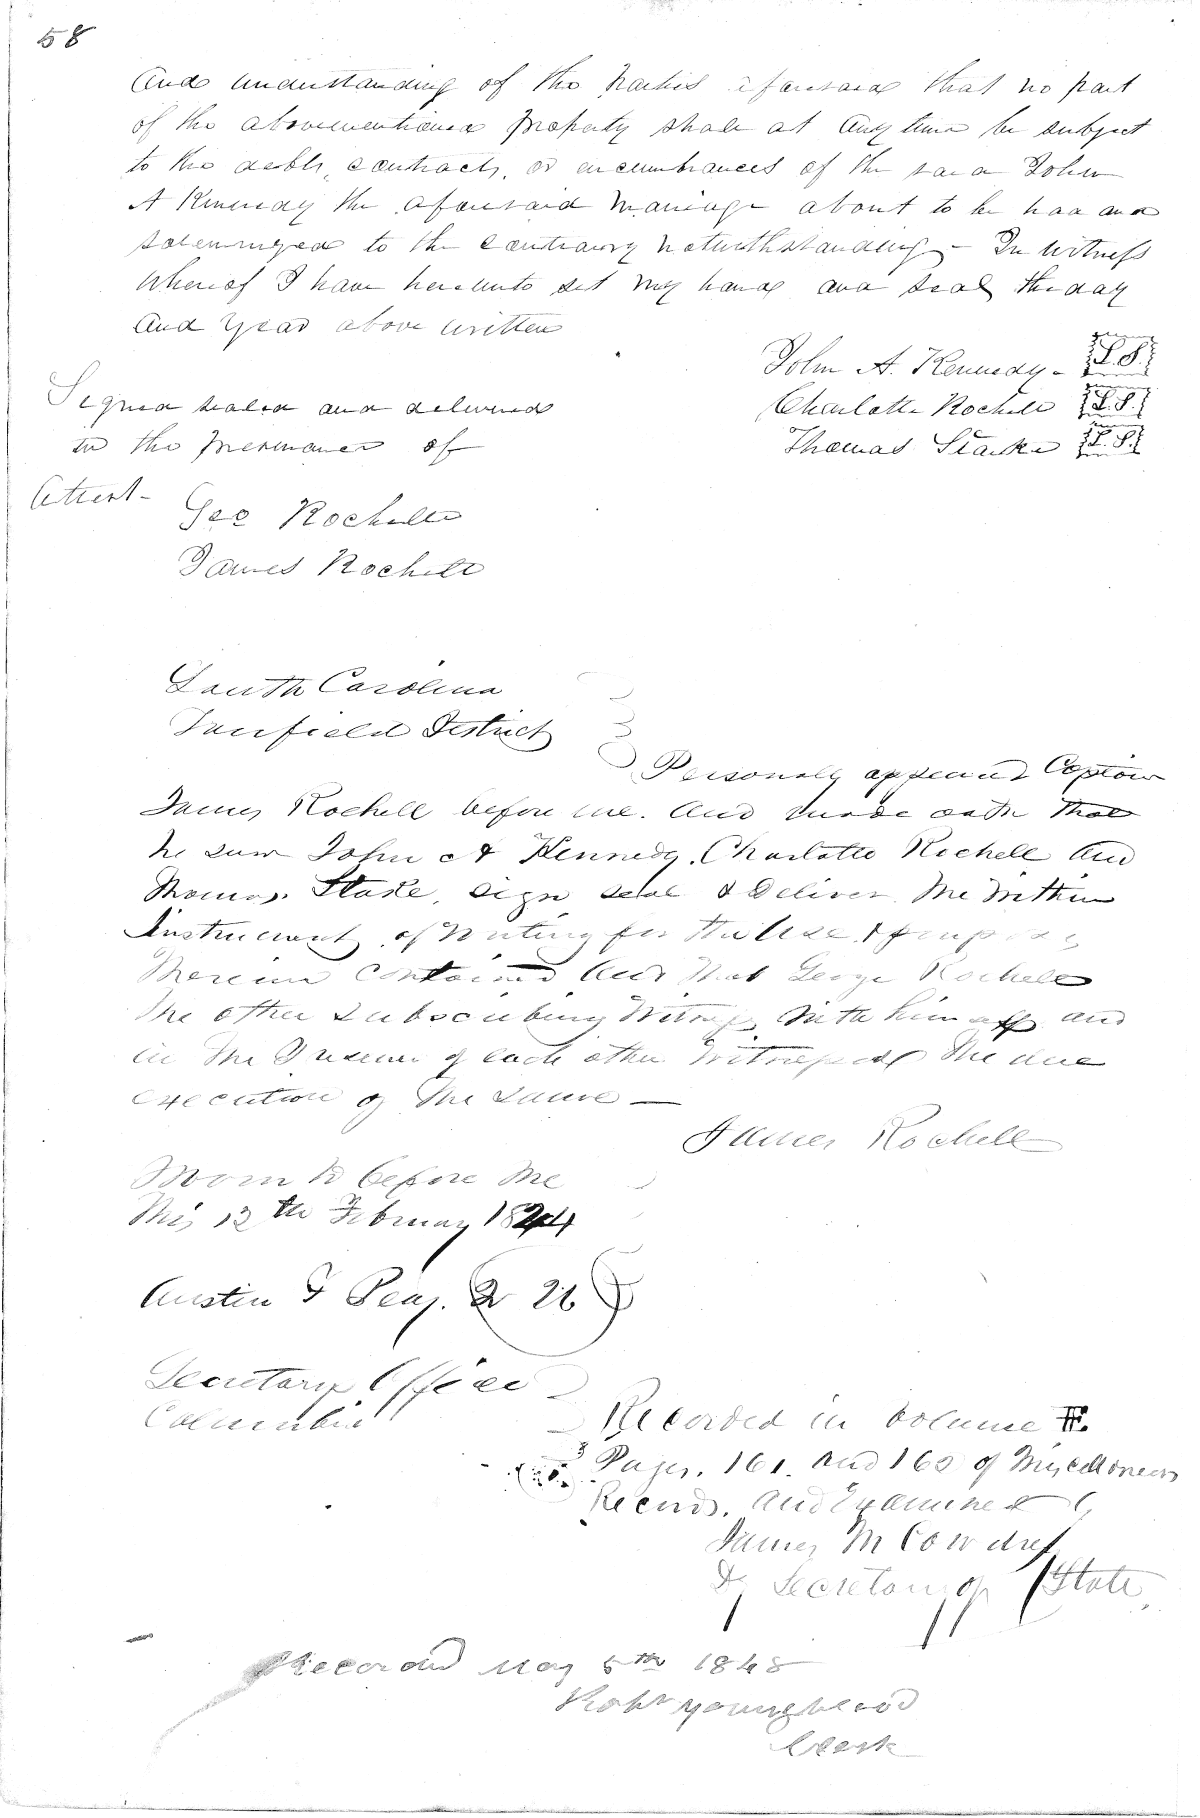 58
and understanding of the Parties aforesaid that no part
of the abovementioned property shall at any time be subject
to the debts, contracts, or incumbrances of the said John
A Kennedy the aforesaid Marriage about to be had and
solemnized to the contrary notwithstanding - In Witness
Whereof I have hereunto set my hand and seal the day
and year above written
John A. Kennedy - L.S.
Charlotte Rochell L.S.
Thomas Starke L.S.
Signed sealed and delivered
in the presence of
Attest -
Geo Rochelle
James Rochell
South Carolina
Fairfield District
Personaly appeared Captain
James Rochell before me. and made oath that
he saw John A Kennedy. Charlotte Rochell and
Thomas Stake, sign seal & deliver the Within
Instrument of Writing for the Use & purposes
Therein contained and that George Rochell
the other Subscribing Witness With himself and
in the Presence of each other Witnessed the due
execution of the same —
James Rochell
Sworn to before me
this 12th February 1844
Austin F Peay. Q U
Secretary Office
Columbia
Recorded in Volume F.
Pages. 161. and 162 of Miscellaneous
Records. and Examined
James M Cowdrey
Dy Secretary of State
Recorded May 5th 1848
Robt Youngblood
Clerk